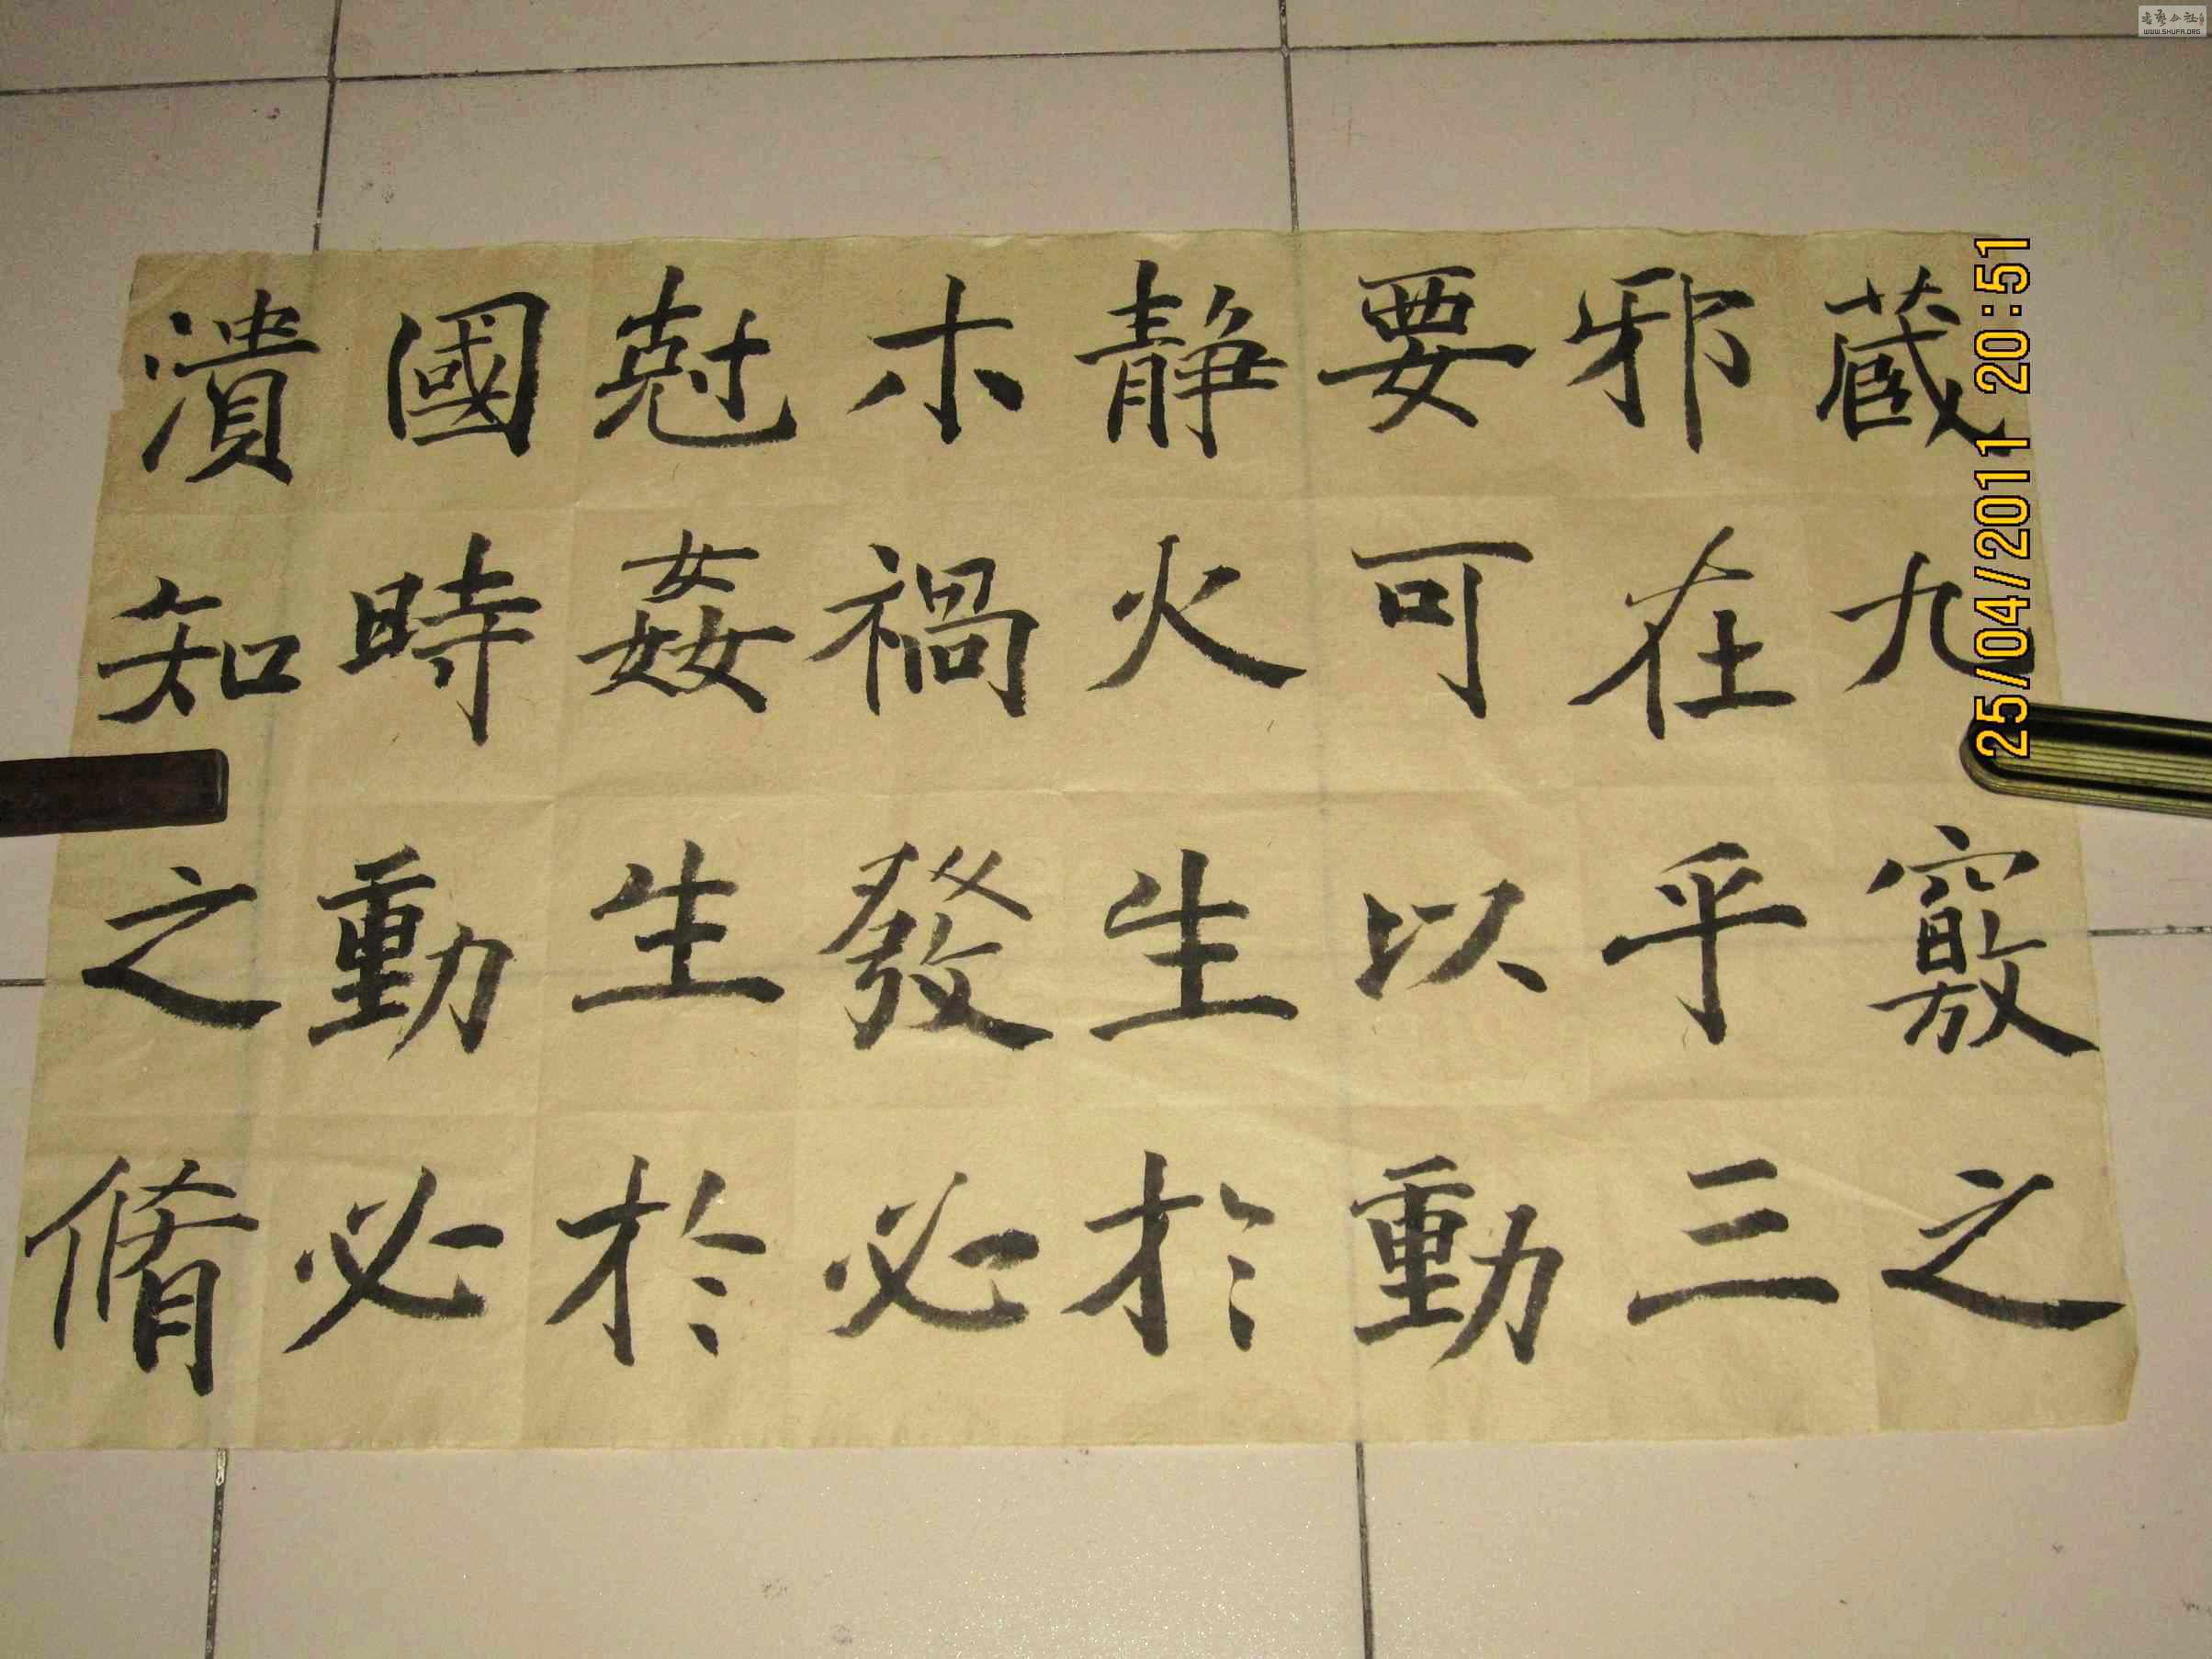 藏九竅之
邪在乎三
要可以動
静火生於
木禍發必
尅姦生於
國時動必
潰知之脩
25/04/2011 20:51
WWW.SHUFA.ORG